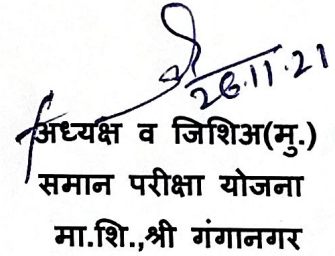 26.11.21
अध्यक्ष व जिशिअ(मु.)
समान परीक्षा योजना
मा.शि.,श्री गंगानगर